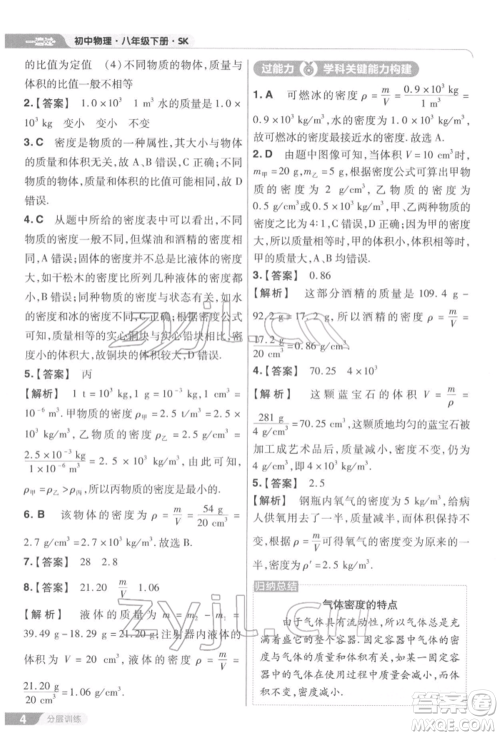 初中物理·八年级下册·SK
的比值一般不相等 (4)不同物质的物体,质量
与体积的比值一般不相等
2.【答案】 1.0×10³ 1 m³水的质量为1.0×
10³ kg 变小 变小 不变
3. C 密度是物质的一种属性,其大小与物体
的质量和体积无关,故 A、B 错误,C 正确;不同
物质的质量与体积的比值可能相等,故 D
错误.
4. C 从题中所给的密度表中可以看出,不同物
质的密度一般不同,但煤油和酒精的密度相同,
A 错误;固体的密度并不总是比液体的密度大,
如干松木的密度小于表中所有液体的密度,B
错误;物质的密度与状态有关,如水和冰的密度
不同,D 错误;相同质量的实心铜块与实心铁块
相比,铁的密度小,故铁块的体积较大,C 正确.
5.【答案】 丙
【解析】 1 t=10³ kg=10⁶ g,1 cm³=
10⁻⁶ m³.甲物质的密度 ρ甲=2.5 t/m³=2.5×
10³ kg/m³,乙物质的密度 ρ乙=
2.5×10⁻³ kg/1×10⁻⁶ m³=2.5×10³ kg/m³,因此,ρ
甲=ρ乙>ρ丙,所以丙物质的密度最小.
6. B 该物体的密度 ρ=m/V=54 g/20 cm³=
2.7 g/cm³=2.7×10³ kg/m³.
7.【答案】 28 2.8
8.【答案】 21.20 m/V 1.06
【解析】 液体的质量 m=m₁-m₂=
39.49 g-18.29 g=21.20 g;注射器内液体的
体积为 V=20 cm³,则液体的密度 ρ=m/V=
21.20 g/20 cm³=1.06 g/cm³.
4 分层训练
过能力 学科关键能力构建
1. A 可燃冰的密度 ρ=m/V=0.9×10³ kg/1 m³=
0.9×10³ kg/m³,水的密度为 1.0×10³ kg/m³,
故可燃冰的密度最接近水的密度.故选 A.
2. D 由题中图像可知,当体积 V=10 cm³ 时,
m甲=20 g,m乙=5 g,根据密度公式可算出甲物
质的密度为 2 g/cm³,乙物质的密度为
0.5 g/cm³=0.5×10³ kg/m³,甲、乙物质的密
度之比为4:1;密度是物质的一种属性,与质量、
体积无关.故选 D,A、B、C 均错误.
3.【答案】 0.86
【解析】 这部分酒精的质量=109.4 g-
92.2 g=17.2 g,所以酒精的密度 ρ=m/V=
17.2 g/20 cm³=0.86 g/cm³.
4.【答案】 70.25 4×10³
【解析】 这颗蓝宝石的体积 V=m/ρ=
281 g/4 g/cm³=70.25 cm³;质地均匀的蓝宝石被
加工成艺术品后,质量变小,密度不变,因此密
度仍为 4 g/cm³=4×10³ kg/m³.
5.【答案】 2.5
【解析】 钢瓶内氧气的密度 ρ=m/V=
5 kg/m³,使用一段时间后,瓶内的氧气质量减
半,体积不变,由 ρ=m/V 可得氧气的密度变为原
来的一半,即氧气的密度 ρ'=2.5 kg/m³.
归纳总结
气体密度的特点
由于气体具有流动性,所以气体总是充
满着的整个容器.固定容器中气体的体积
等于容器的容积,是不变的,如果某一固定
容器中的气体在使用过程中质量减小,而体
积不变,则密度变小.
zyjl.cn
zyjl.cn
答案圈
MXQE.COM